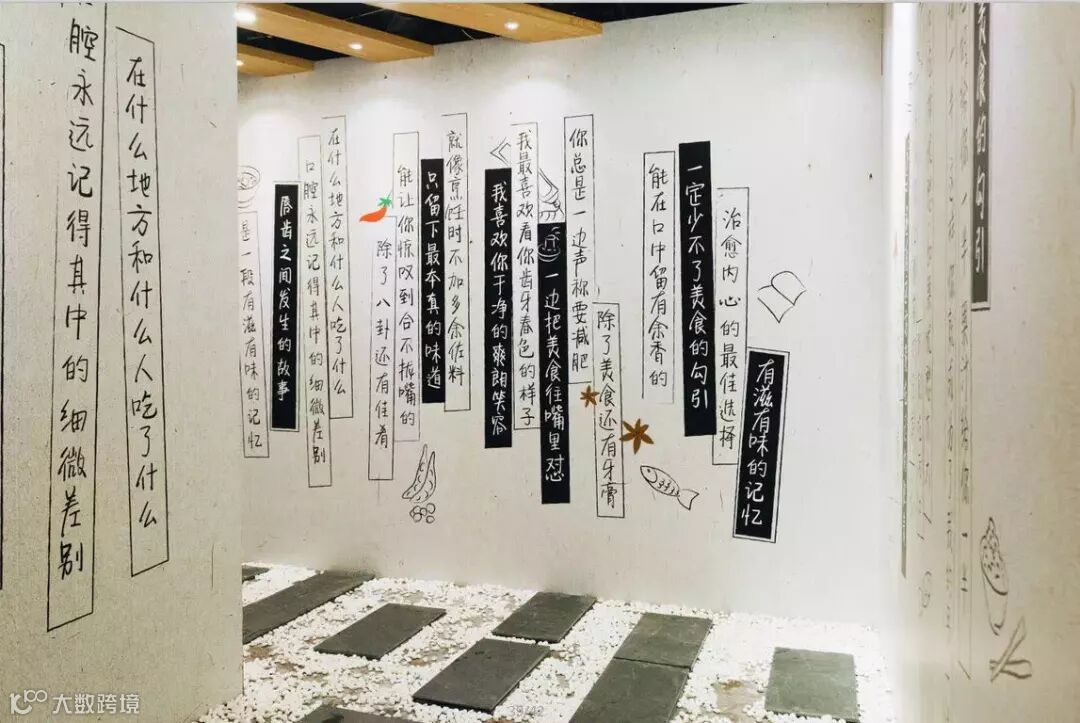 美食的勾引
有滋有味的记忆
治愈内心的最佳选择
一定少不了美食的勾引
能在口中留有余香的
除了美食还有牙膏
你总是一边声称要减肥
一边把美食往嘴里怼
我最喜欢看你齿牙春色的样子
我喜欢你干净的爽朗笑容
就像烹饪时不加多余佐料
只留下最本真的味道
能让你惊叹到合不拢嘴的
除了八卦还有佳肴
在什么地方和什么人吃了什么
口腔永远记得其中的细微差别
唇齿之间发生的故事
是一段有滋有味的记忆
在什么地方和什么人吃了什么
腔永远记得其中的细微差别
大数跨境